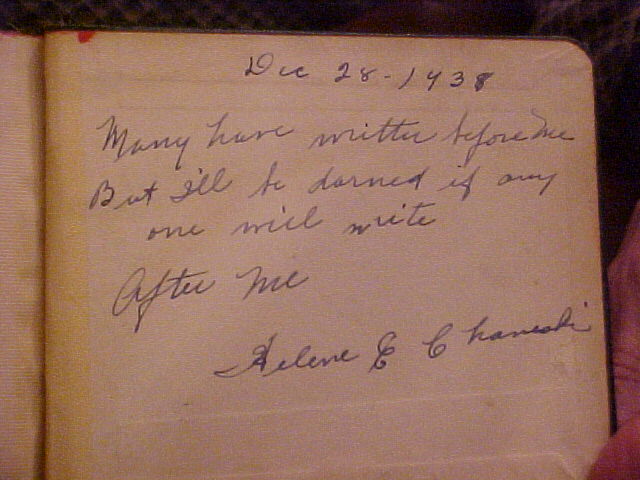 Dec 28-1938
Many have written before me
But I'll be darned if any
one will write
After Me
Helene E